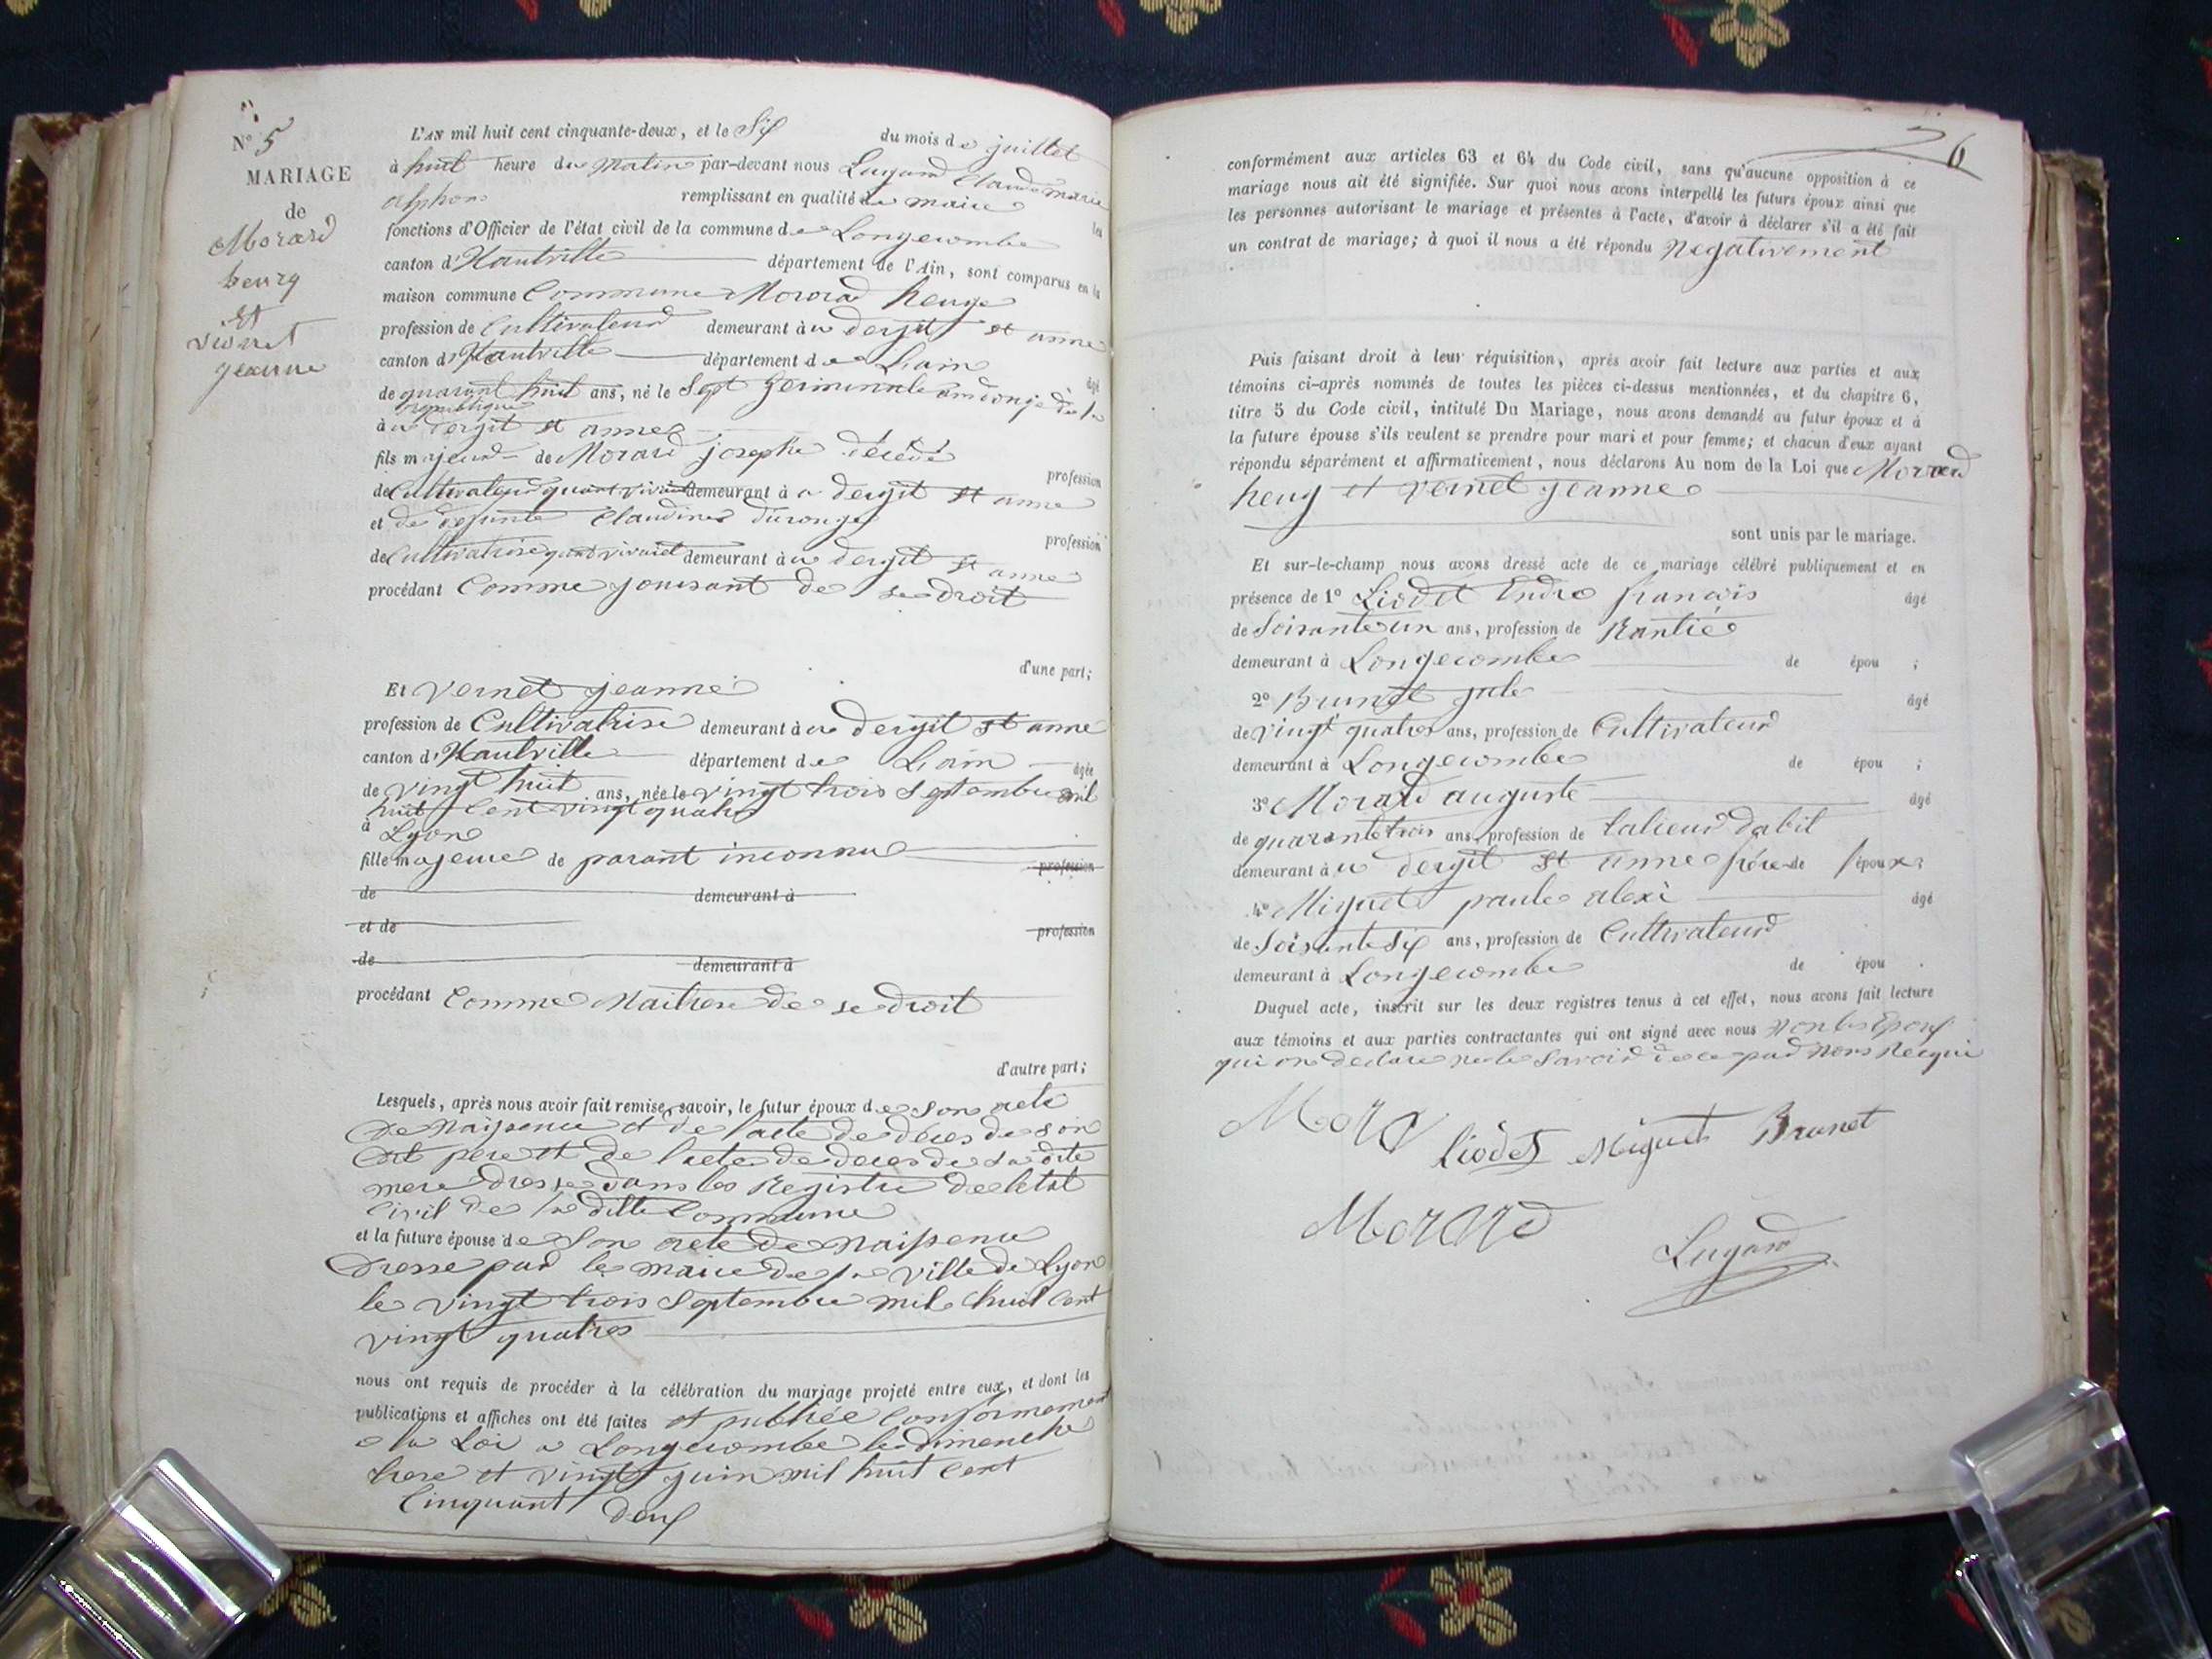 N° 5
MARIAGE
de
Morard
heury
et
viornet
jeanne
L'AN mil huit cent cinquante-deux, et le Six du mois de juillet
à huit heure du Matin par-devant nous Lugand Claude marie
alphons remplissant en qualité de maire les
fonctions d'Officier de l'état civil de la commune de Longecombe
canton d'Hautville département de l'Ain, sont comparus en la
maison commune Commune Morard heury
profession de Cultivateur demeurant à a dergit st anne
canton d'Hautville département de Lain âgé
de quarant huit ans, né le Sept Germinale an donze de la
republique
à a dergit st anne
fils majeur de Morard josephe décédé profession
de Cultivateur quant vivait demeurant à a dergit st anne
et de defunte Claudine Duronge profession
de Cultivatrise quant vivait demeurant à a dergit st anne
procédant Comme jouisant de se droit
d'une part;
Et vernet jeanne
profession de Cultivatrise demeurant à a dergit st anne
canton d'Hautville département de Lain âgée
de vingt huit ans, née le vingt trois Septembre mil
huit Cent vingt quatre
à Lyon
fille majeure de parant inconnu profession
de demeurant à
et de profession
de demeurant à
procédant Comme Maitrese de se droit
d'autre part;
Lesquels, après nous avoir fait remise, savoir, le futur époux de son acte
de Naissence et de l'acte de déces de son
dit pere et de l'acte de deces de sa dite
mere dresse dans les Registre de letat
Civil de la ditte Commune
et la future épouse de Son acte de Naissence
Dresse par le maire de la ville de Lyon
le vingt trois Septembre mil huit Cent
vingt quatres
nous ont requis de procéder à la célébration du mariage projeté entre eux, et dont les
publications et affiches ont été faites et publiée Conformement
a la Loi a Longecombe le dimenche
treze et vingt juin mil huit Cent
Cinquant deux
6
conformément aux articles 63 et 64 du Code civil, sans qu'aucune opposition à ce
mariage nous ait été signifiée. Sur quoi nous avons interpellé les futurs époux ainsi que
les personnes autorisant le mariage et présentes à l'acte, d'avoir à déclarer s'il a été fait
un contrat de mariage; à quoi il nous a été répondu Negativement
Puis faisant droit à leur réquisition, après avoir fait lecture aux parties et aux
témoins ci-après nommés de toutes les pièces ci-dessus mentionnées, et du chapitre 6,
titre 5 du Code civil, intitulé Du Mariage, nous avons demandé au futur époux et à
la future épouse s'ils veulent se prendre pour mari et pour femme; et chacun d'eux ayant
répondu séparément et affirmativement, nous déclarons Au nom de la Loi que Morard
heuy et vernet jeanne
sont unis par le mariage.
Et sur-le-champ nous avons dressé acte de ce mariage célébré publiquement et en
présence de 1° Liodet Andre francois âgé
de Soisante un ans, profession de Rantié
demeurant à Longecombe de épou ;
2° Brunet jule âgé
de vingt quatre ans, profession de Cultivateur
demeurant à Longecombe de épou ;
3° Morard auguste âgé
de quarante trois ans, profession de talieur dabit
demeurant à a dergit st anne frére de l'époux;
4° Miguet paule alexi âgé
de Soisante Six ans, profession de Cultivateur
demeurant à Longecombe de épou .
Duquel acte, inscrit sur les deux registres tenus à cet effet, nous avons fait lecture
aux témoins et aux parties contractantes qui ont signé avec nous Non les Epoux
qui on declare ne le Savoir de ce par nous Requi
Liodet Miguet Brunet
Morard
Lugand